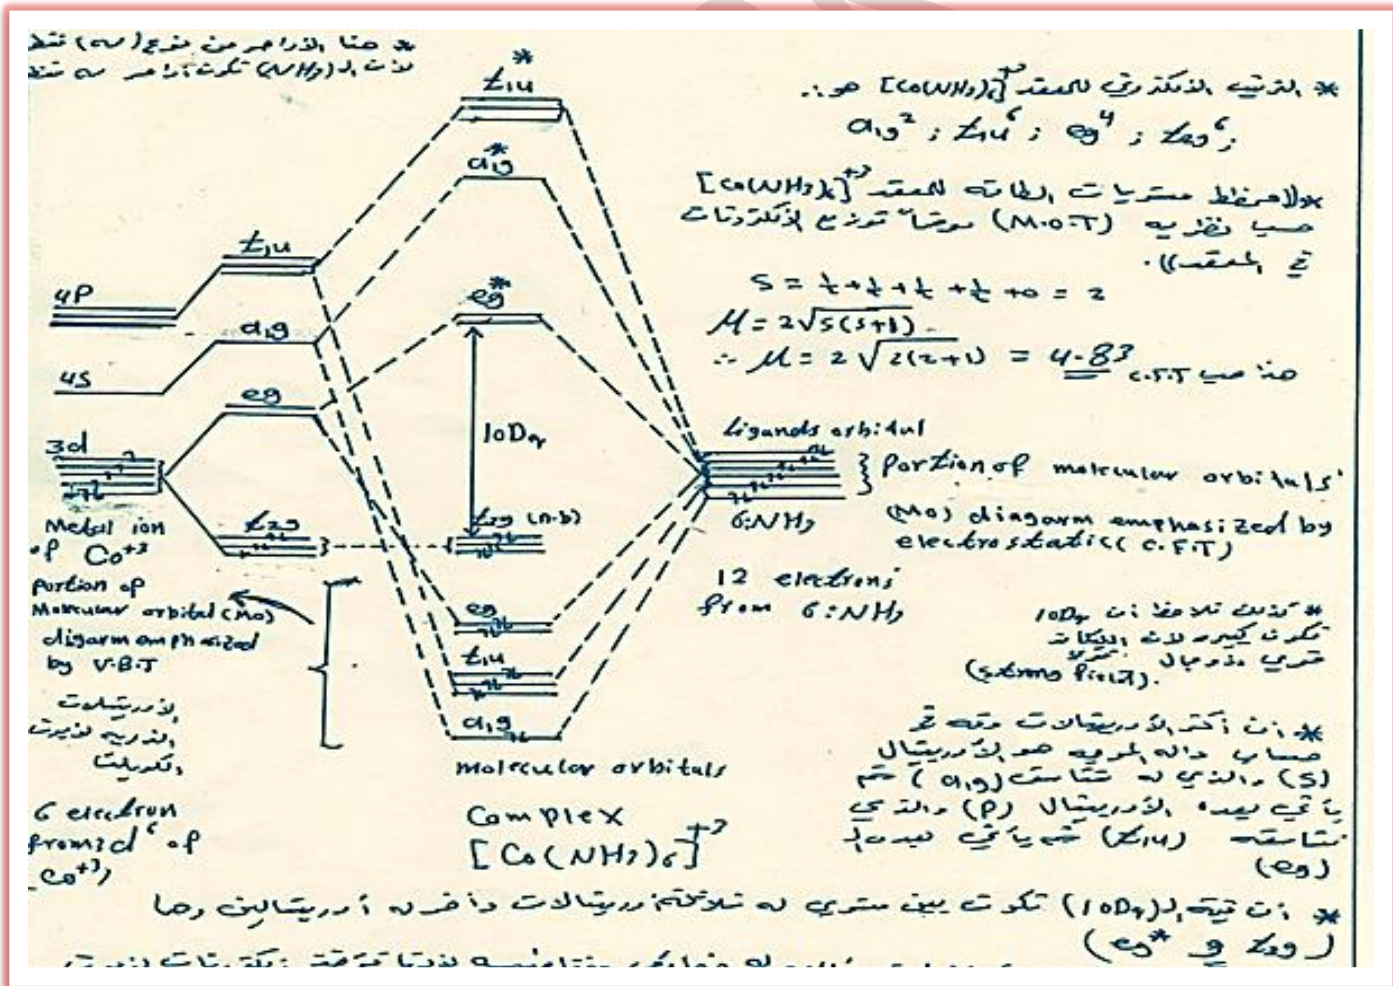 * هنا الأواصر من نوع (σ) فقط
لأن الـ (NH3) تكون أواصر σ فقط
t1u*
a1g*
t1u
4P
a1g
4S
eg*
eg
3d
10Dq
t2g
t2g (n.b)
Metal ion
of Co+3
portion of
Molecular orbital (MO)
digarm emphasized
by V.B.T
eg
t1u
a1g
molecular orbitals
الأوربيتالات
6 electron
from 3d6 of
Co+3
Complex
[Co(NH3)6]+3
* الترتيب الألكتروني للمعقد [Co(NH3)6]+3 هو :.
a1g2 ; t1u6 ; eg4 ; t2g6 ;
مخطط مستويات الطاقة للمعقد [Co(NH3)6]+3
حسب نظرية (M.O.T) موضحاً توزيع الألكترونات
في المعقد)).
S = ½ + ½ + ½ + ½ + 0 = 2
M = 2√S(S+1)
∴ M = 2√2(2+1) = 4.83
هذا حسب C.F.T
Ligands orbital
portion of molecular orbitals
6:NH3
(MO) diagarm emphasized by
electrostatic ( C.F.T)
12 electrons
from 6:NH3
* كذلك نلاحظ أن 10Dq
تكون كبيرة لأن الليكاند
قوي وذو مجال
(strong field).
* أن أكثر الأوربيتالات دقة في
حساب دالة الموجة هو الأوربيتال
(S) والذي له تناسق (a1g) ثم
يأتي بعده الأوربيتال (P) والذي
تناسقه (t1u) ثم يأتي بعده
(eg)
* أن قيمة الـ (10Dq) تكون بين مستوي له ثلاثة أوربيتالات وآخر له أوربيتالين وهما
(eg* و t2g)